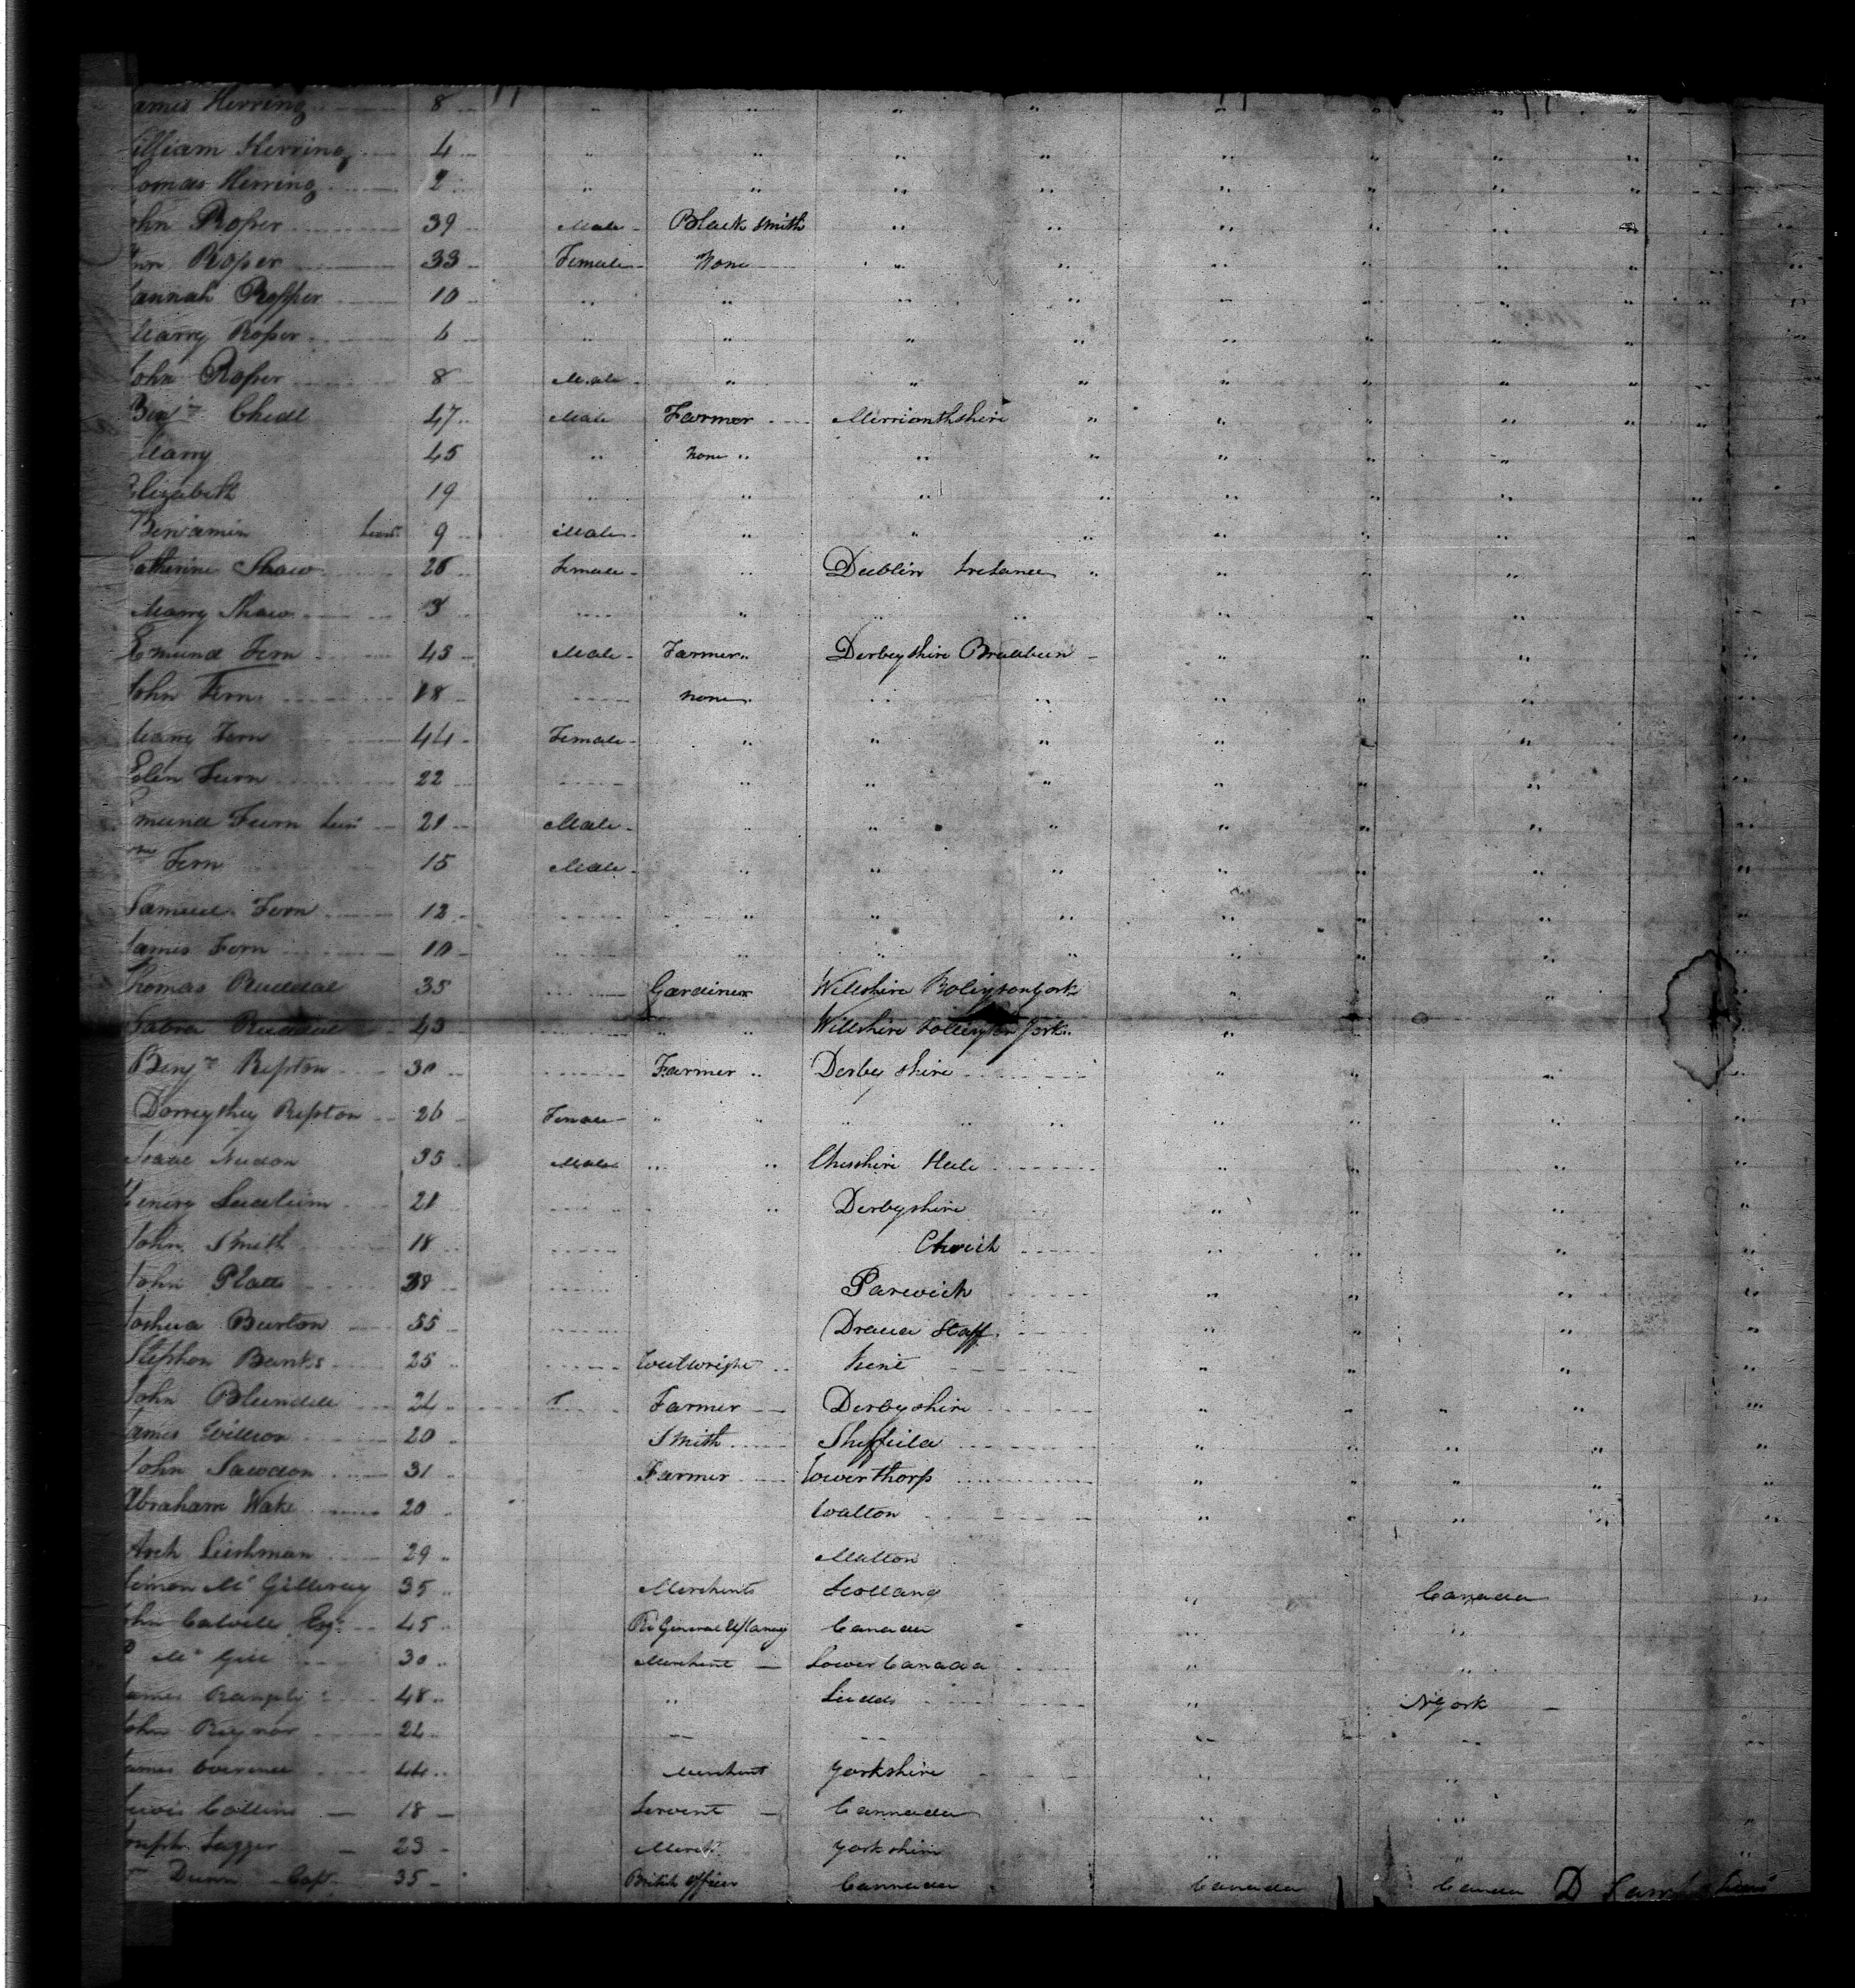 ames Herring 8 " " " " " " " "
illiam Herring 4 " " " " " " " "
omas Herring 2 " " " " " " " "
ohn Roper 39 Male Black smith " " " " "
nn Roper 33 Female None " " " " " "
annah Ropper 10 " " " " " " " "
Marry Roper 6 " " " " " " " "
John Roper 8 Male " " " " " " "
Benjn Cheal 47 Male Farmer Merrionthshire " " " " "
Marry 45 " None " " " " " "
Elizabeth 19 " " " " " " "
Benjamin Junr 9 Male " " " " " "
Catherine Shaw 26 Female " Dublin Ireland " " " "
Marry Shaw 3 " " " " " "
Emund Fern 43 Male Farmer Derbeyshire Bradburn " " "
John Fern 18 none " " " " "
Marry Fern 44 Female " " " " " "
Eolen Fearn 22 " " " " "
mund Fearn Junr 21 Male " " " " " "
m Fern 15 Male " " " " " "
Samuel Fern 12 " " " " " "
James Fern 10 " " " " " "
Thomas Ruddal 35 Gardiner Willshire " "
43 " " Willshire York " "
Benjn Repton 30 Farmer Derbey shire " " "
Dorreythey Repton 26 Female " " " " " " "
Isaac 35 Male " " Cheshire " " "
Henery Ludlum 21 " Derbyshire " " "
John Smith 18 " " "
John Platts 38 Parwich " " "
Joshua Burton 55 Staff " " "
Stephen Banks 25 Kent " " "
John Blundell 24 Farmer Derbyshire " " "
James Willson 20 Smith Sheffield " " "
John Sawdon 31 Farmer Lowerthorp " " "
Abraham Wake 20 Walton " " "
Arch Lieshman 29 Malton
Simon McGilleray 35 Merchents Scotland " Canada
ohn Calvill Esqr 45 Canada " "
P McGill 30 Merchent Lower Canada " "
James 48 " Leeds " NYork
John Reynor 24
James 44 Merchent Yorkshire " "
Lewis Collins 18 Servent Cannada " "
Joseph Lagger 23 Mercht Yorkshire " "
m Dunn Capt 35 British Officer Cannada Canada Canada D